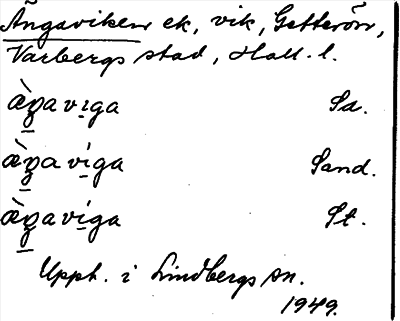 Ängaviken ek, vik, Getterön,
Varbergs stad, Hall. l.
æ̀ŋaviga Sa.
æ̀ŋavíga Sand.
æ̀ŋavíga St.
Upph. i Lindbergs sn.
1949.